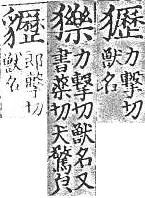 力擊切
獸名
力擊切獸名又
書藥切犬驚皃
郎擊切
獸名